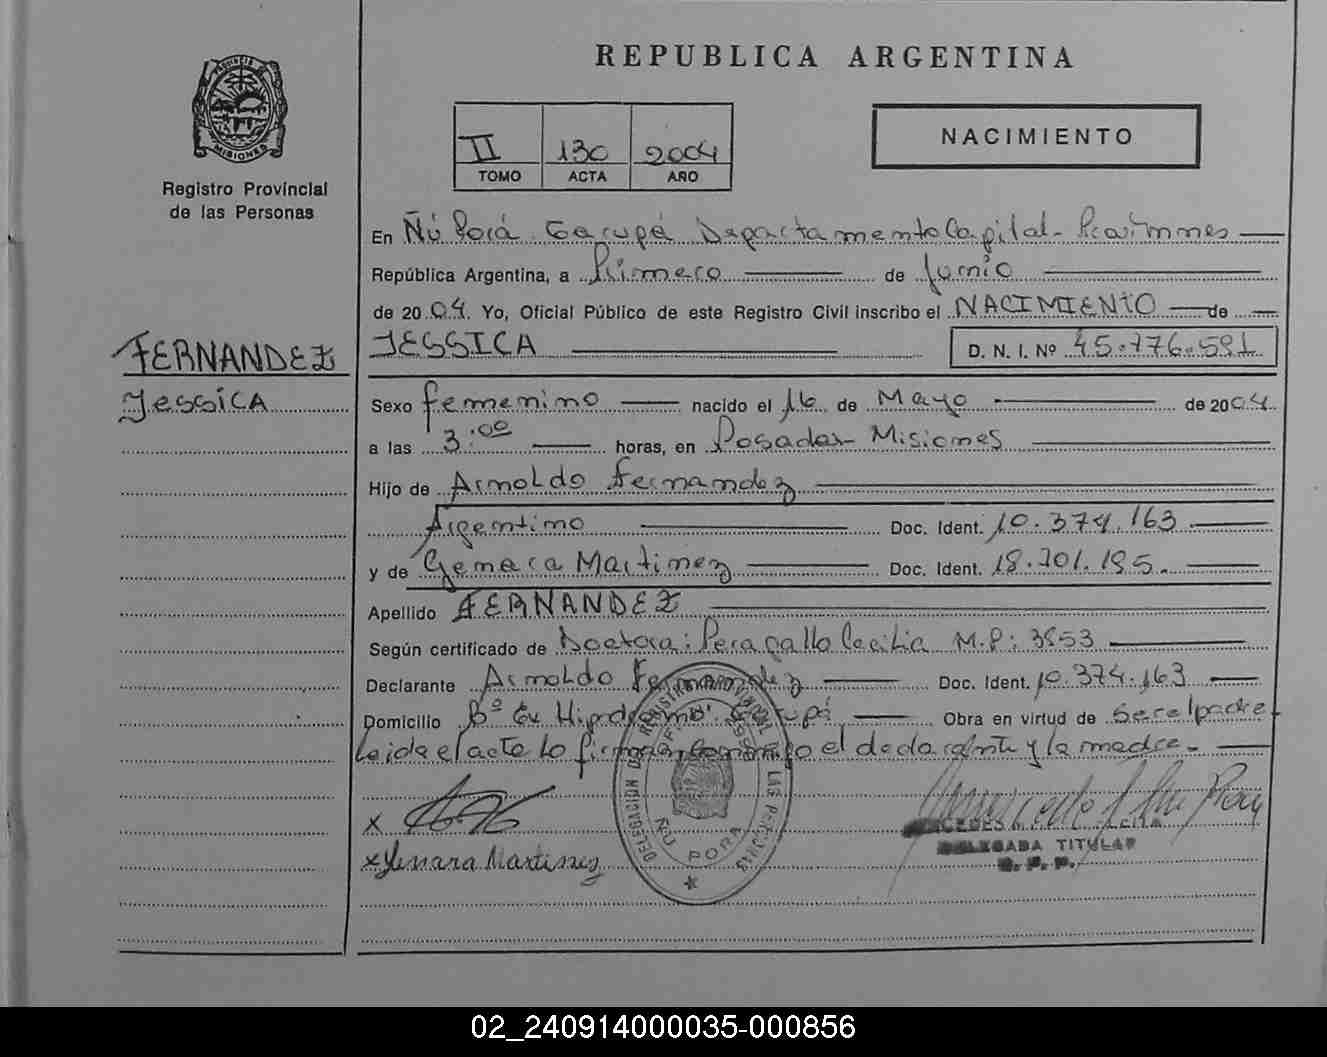 REPUBLICA ARGENTINA
PROVINCIA DE
MISIONES
Registro Provincial
de las Personas
II 130 2004
TOMO ACTA AÑO
NACIMIENTO
En Ñú Porá Garupá Departamento Capital
República Argentina, a Primero de Junio
de 2004. Yo, Oficial Público de este Registro Civil inscribo el NACIMIENTO de
JESSICA D. N. I. Nº 45.776.591
FERNANDEZ
Jessica
Sexo femenino nacido el 16 de Mayo de 2004
a las 3:00 horas, en Posadas Misiones
Hijo de Arnoldo Fernandez
Argentino Doc. Ident. 10.374.163
y de Genara Martinez Doc. Ident. 18.701.195.
Apellido FERNANDEZ
Según certificado de Doctora: Peragallo Cecilia M.P: 3853
Declarante Arnoldo Fernandez Doc. Ident. 10.374.163
Domicilio Bº Ex Hipodromo Garupá Obra en virtud de ser el padre
Leida el acta lo firman conmigo el declarante y la madre.
x
x Genara Martinez
DELEGACION DEL REGISTRO PROVINCIAL DE LAS PERSONAS
ÑU PORA
DELEGADA TITULAR
R. P. P.
02_240914000035-000856